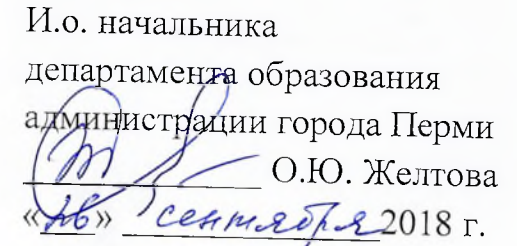 И.о. начальника
департамента образования
администрации города Перми
О.Ю. Желтова
«26» сентября 2018 г.